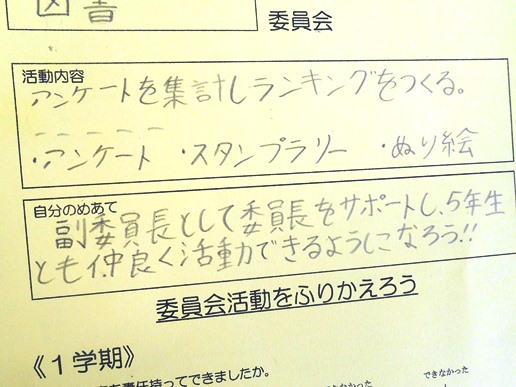 図書
委員会
活動内容
アンケートを集計しランキングをつくる。
・アンケート ・スタンプラリー ・ぬり絵
自分のめあて
副委員長として委員長をサポートし、5年生
とも仲良く活動できるようになろう!!
委員会活動をふりかえろう
《1学期》
責任持ってできましたか。
できなかった